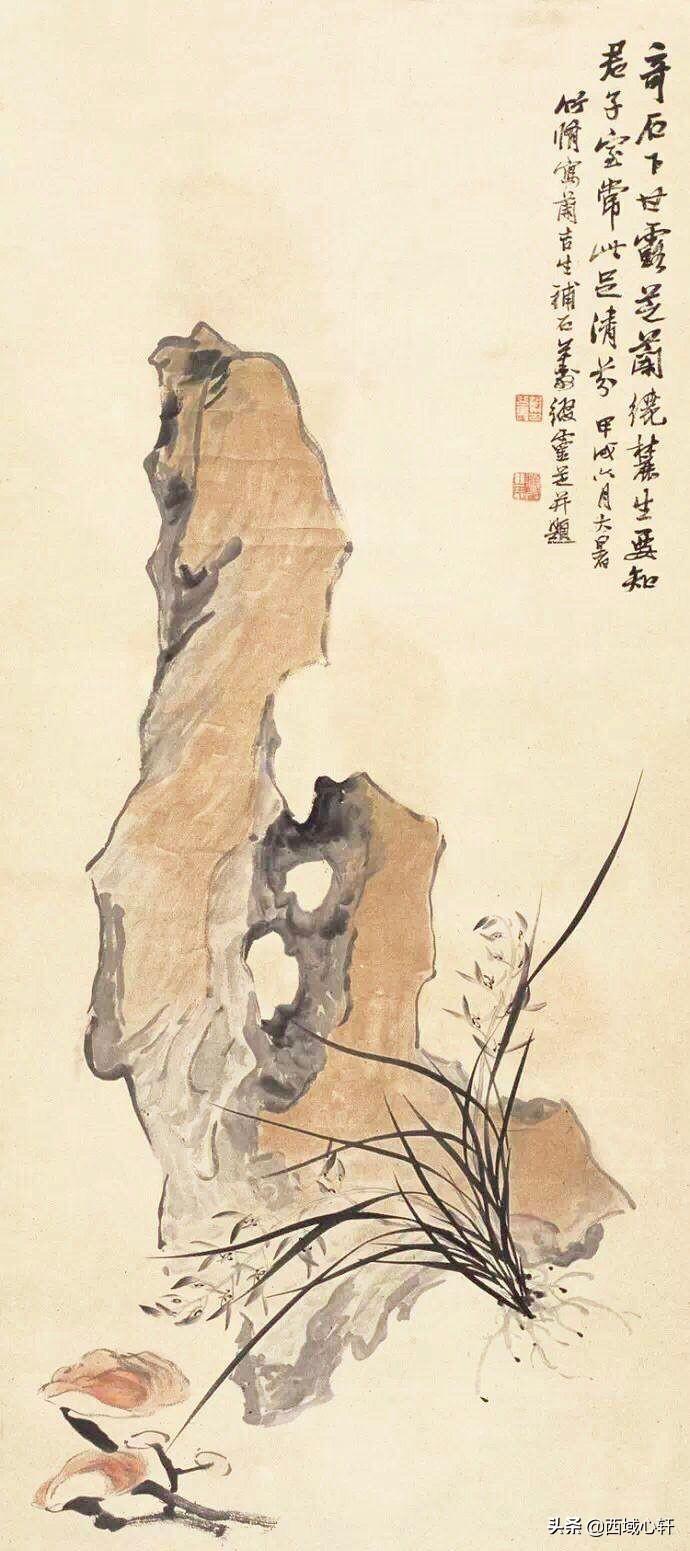 奇石下甘露芝蘭繞麓生要知
君子室常此足清芬 甲戌六月大暑
寫蘭古生補石綴靈芝并題
头条 @西域心轩